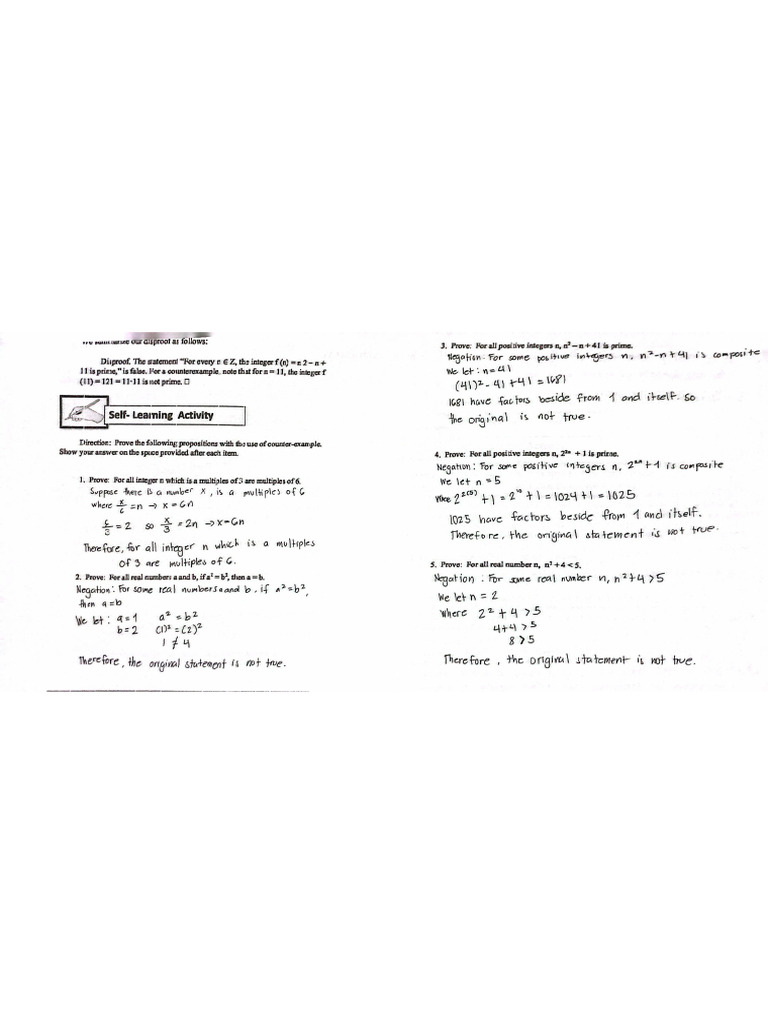 We summarize our disproof as follows:
Disproof. The statement "For every n ∈ Z, the integer f (n) = n 2 – n +
11 is prime," is false. For a counterexample, note that for n = 11, the integer f
(11) = 121 = 11·11 is not prime. □
Self- Learning Activity
Direction: Prove the following propositions with the use of counter-example.
Show your answer on the space provided after each item.
1. Prove: For all integer n which is a multiples of 3 are multiples of 6.
Suppose there is a number x, is a multiples of 6
where x/6 = n → x = 6n
6/3 = 2 so x/3 = 2n → x = 6n
Therefore, for all integer n which is a multiples
of 3 are multiples of 6.
2. Prove: For all real numbers a and b, if a² = b², then a = b.
Negation: For some real numbers a and b, if a² = b²,
then a = b
We let: a = 1 a² = b²
b = 2 (1)² = (2)²
1 ≠ 4
Therefore, the original statement is not true.
3. Prove: For all positive integers n, n² – n + 41 is prime.
Negation: For some positive integers n, n² - n + 41 is composite
We let: n = 41
(41)² - 41 + 41 = 1681
1681 have factors beside from 1 and itself. So
the original is not true.
4. Prove: For all positive integers n, 2²ⁿ + 1 is prime.
Negation: For some positive integers n, 2²ⁿ + 1 is composite
We let n = 5
2²⁽⁵⁾ + 1 = 2¹⁰ + 1 = 1024 + 1 = 1025
1025 have factors beside from 1 and itself.
Therefore, the original statement is not true.
5. Prove: For all real number n, n² + 4 < 5.
Negation: For some real number n, n² + 4 > 5
We let n = 2
where 2² + 4 > 5
4 + 4 > 5
8 > 5
Therefore, the original statement is not true.